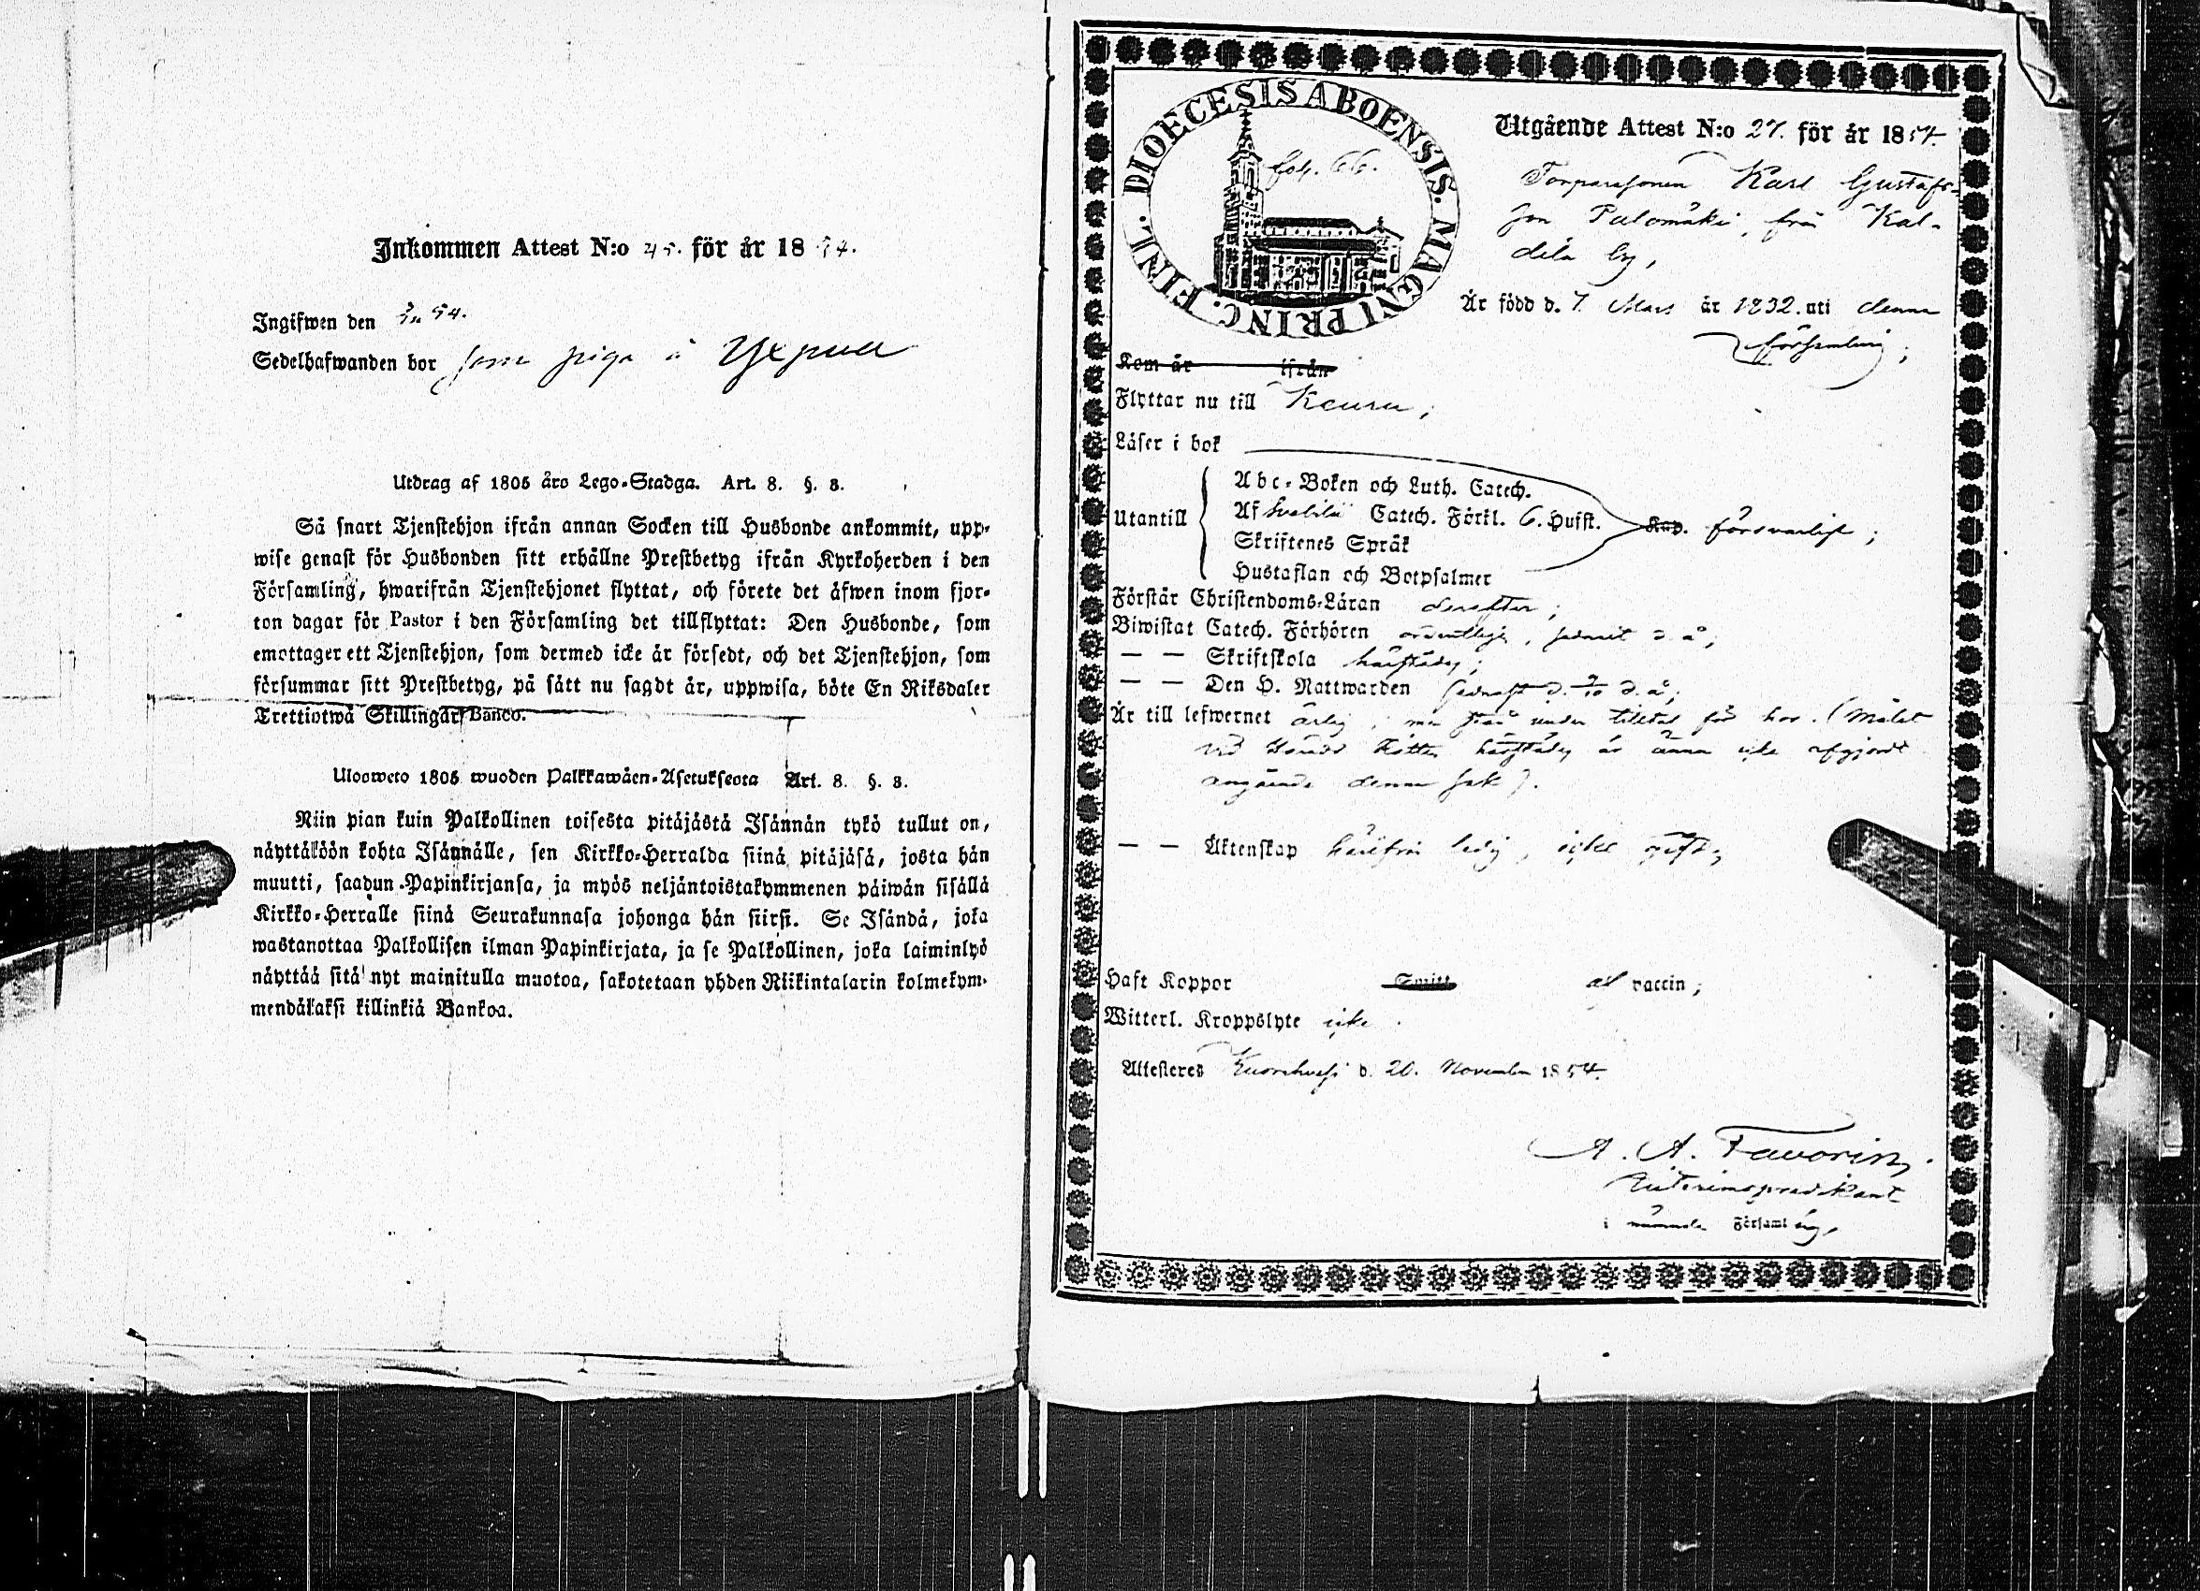 Inkommen Attest N:o 45. för år 1854.
Ingifwen den 54.
Sedelhafwanden bor som piga å Yxpula
Utdrag af 1805 års Lego-Stadga. Art. 8. §. 8.
Så snart Tjenstehjon ifrån annan Socken till Husbonde ankommit, upp-
wise genast för Husbonden sitt erhållne Prestbetyg ifrån Kyrkoherden i den
Församling, hwarifrån Tjenstehjonet flyttat, och förete det äfwen inom fjor-
ton dagar för Pastor i den Församling det tillflyttat: Den Husbonde, som
emottager ett Tjenstehjon, som dermed icke är försedt, och det Tjenstehjon, som
försummar sitt Prestbetyg, på sätt nu sagdt är, uppwisa, böte En Riksdaler
Trettiotwå Skillingar Banco.
Ulosweto 1805 wuoden Palkkawäen-Asetuksesta Art. 8. §. 8.
Niin pian kuin Palkollinen toisesta pitäjästä Isännän tykö tullut on,
näyttäköön kohta Isännälle, sen Kirkko-Herralda siinä pitäjäsä, josta hän
muutti, saadun Papinkirjansa, ja myös neljäntoistakymmenen päiwän sisällä
Kirkko-Herralle siinä Seurakunnasa johonga hän siirsi. Se Isändä, joka
wastanottaa Palkollisen ilman Papinkirjata, ja se Palkollinen, joka laiminlyö
näyttää sitä nyt mainitulla muotoa, sakotetaan yhden Riikintalarin kolmekym-
mendäkaksi killinkiä Bankoa.
DIOECESIS ABOENSIS. MAGNI PRINC. FINL.
fol. 66.
Utgående Attest N:o 27. för år 1854.
Torparesonen Karl Gustafs-
son Palomäki, från Kal-
dela by,
Är född d. 7 Mars år 1832. uti denna
församling;
Kom år ifrån
Flyttar nu till Keuru;
Läser i bok
Utantill
Abc-Boken och Luth. Catech.
Af Svebilii Catech. Förkl. 6. Hufst.
Skriftenes Språk
Hustaflan och Botpsalmer
Kap. försvarligt;
Förstår Christendoms-Läran derefter;
Biwistat Catech. Förhören ordentligt, sednast d. å;
— — Skriftskola härstädes;
— — Den H. Nattwarden sednast d. 9/10 d. å;
Är till lefwernet ärlig; men står under tilltal för hor. (Målet
vid Härads Rätten härstädes är ännu icke afgjordt
angående denna sak).
— — Äktenskap härifrån ledig, icke gift;
Haft Koppor Smitt af vaccin;
Witterl. Kroppslyte icke.
Attesteres Kuorehvesi d. 20. November 1854.
A. A. Favorin,
Interimspredikant
i nämnda Församling,